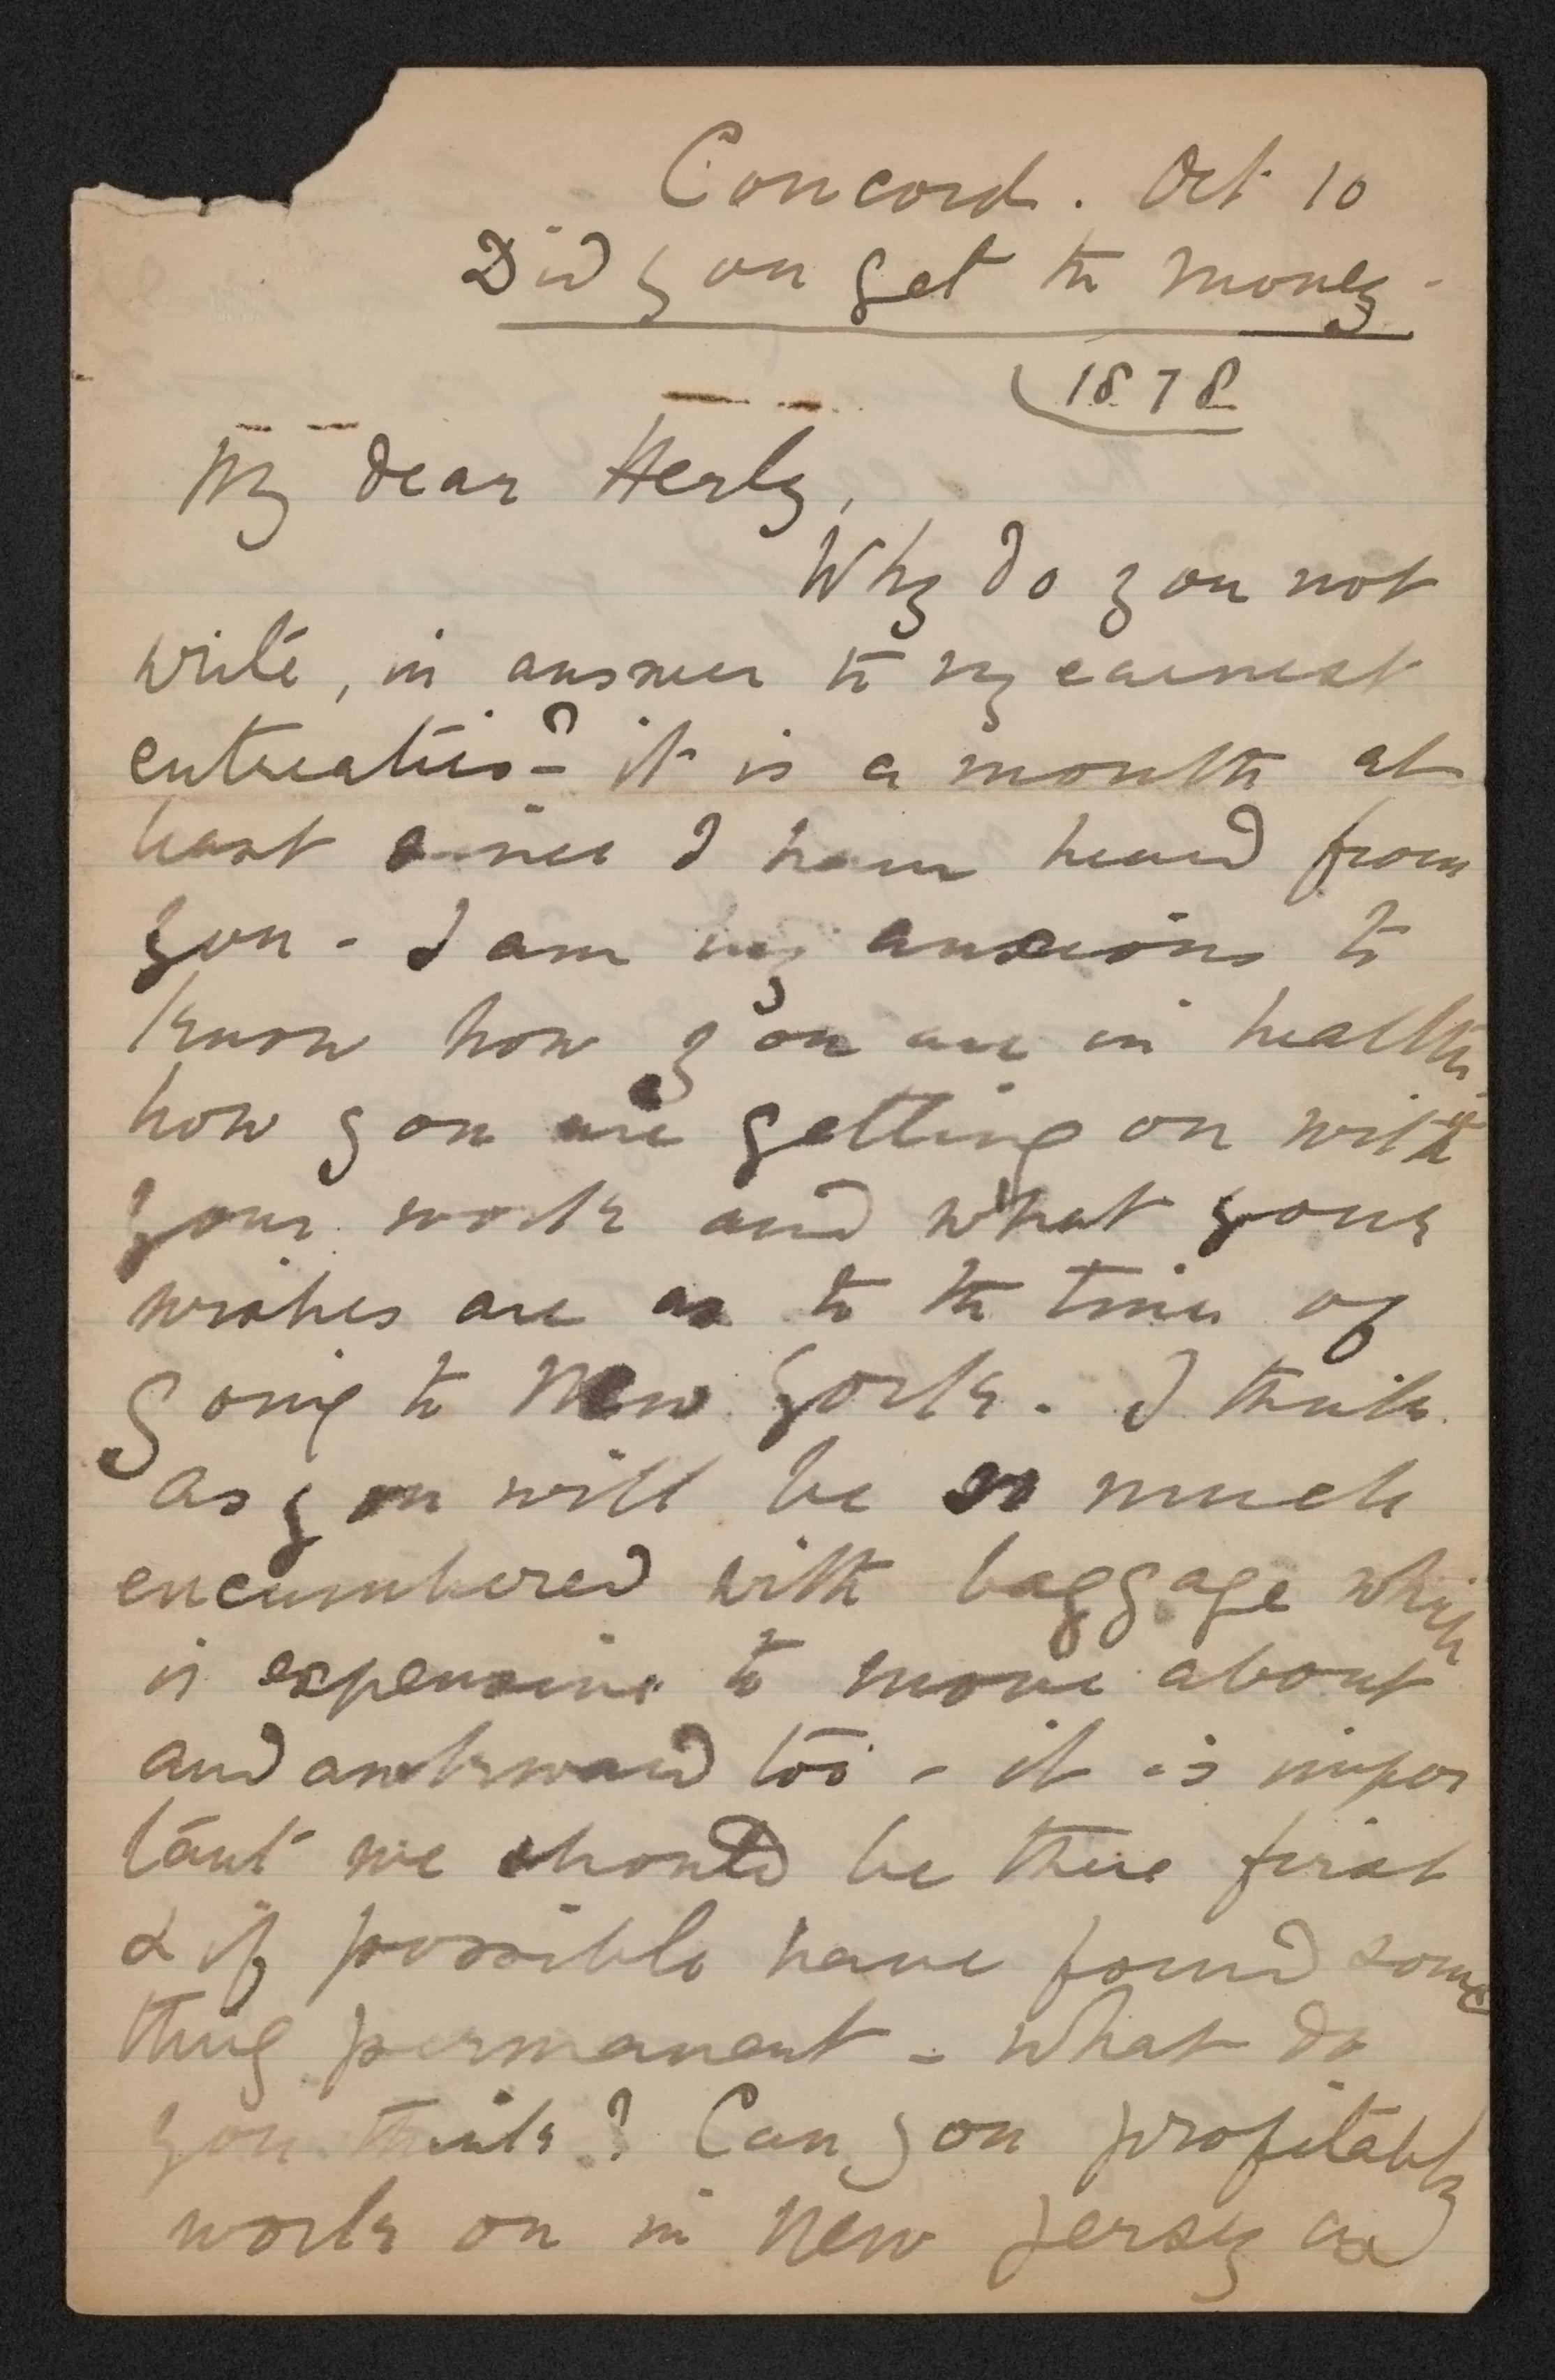 Concord. Oct 10
Did you get the money -
1878
My dear Herby,
Why do you not
write, in answer to my earnest
entreaties? - it is a month at
least since I have heard from
you - I am very anxious to
know how you are in health,
how you are getting on with
your work and what your
wishes are as to the time of
going to New York. I think
as you will be so much
encumbered with baggage which
is expensive to move about
and awkward too - it is impor
tant we should be there first
& if possible have found some
thing permanent - What do
you think? Can you profitably
work on in New Jersey and